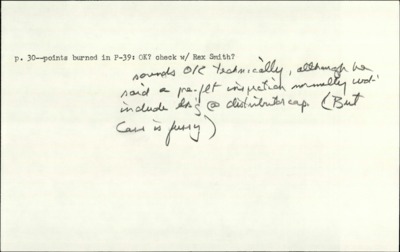 p. 30--points burned in P-39: OK? check w/ Rex Smith?
sounds OK technically, although he
said a pre-flt inspection normally wd
include lkg @ distributor cap. (But
Cars is fussy)